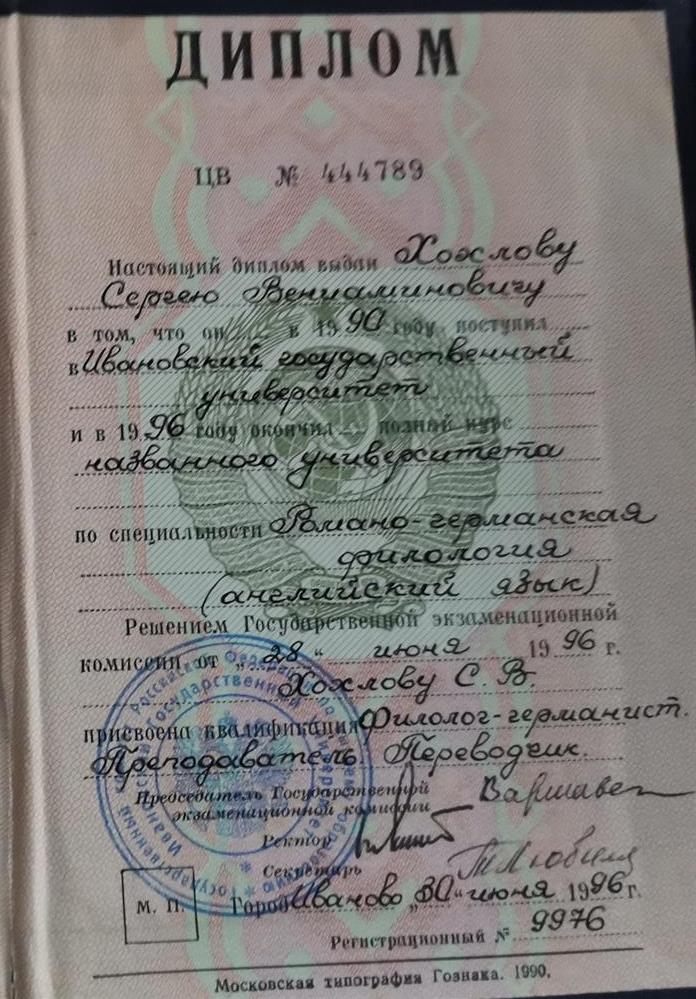 ДИПЛОМ
ЦВ № 444789
Настоящий диплом выдан Хохлову
Сергею Вениаминовичу
в том, что он в 1990 году поступил
в Ивановский государственный
университет
и в 1996 году окончил полный курс
названного университета
по специальности Романо-германская
филология
(английский язык)
Решением Государственной экзаменационной
комиссии от „28“ июня 1996 г.
Хохлову С. В.
присвоена квалификация Филолог-германист.
Преподаватель. Переводчик.
Председатель Государственной
экзаменационной комиссии
Ректор
Секретарь
М. П.
Город Иваново „30“ июня 1996 г.
Регистрационный № 9976
Московская типография Гознака. 1990.